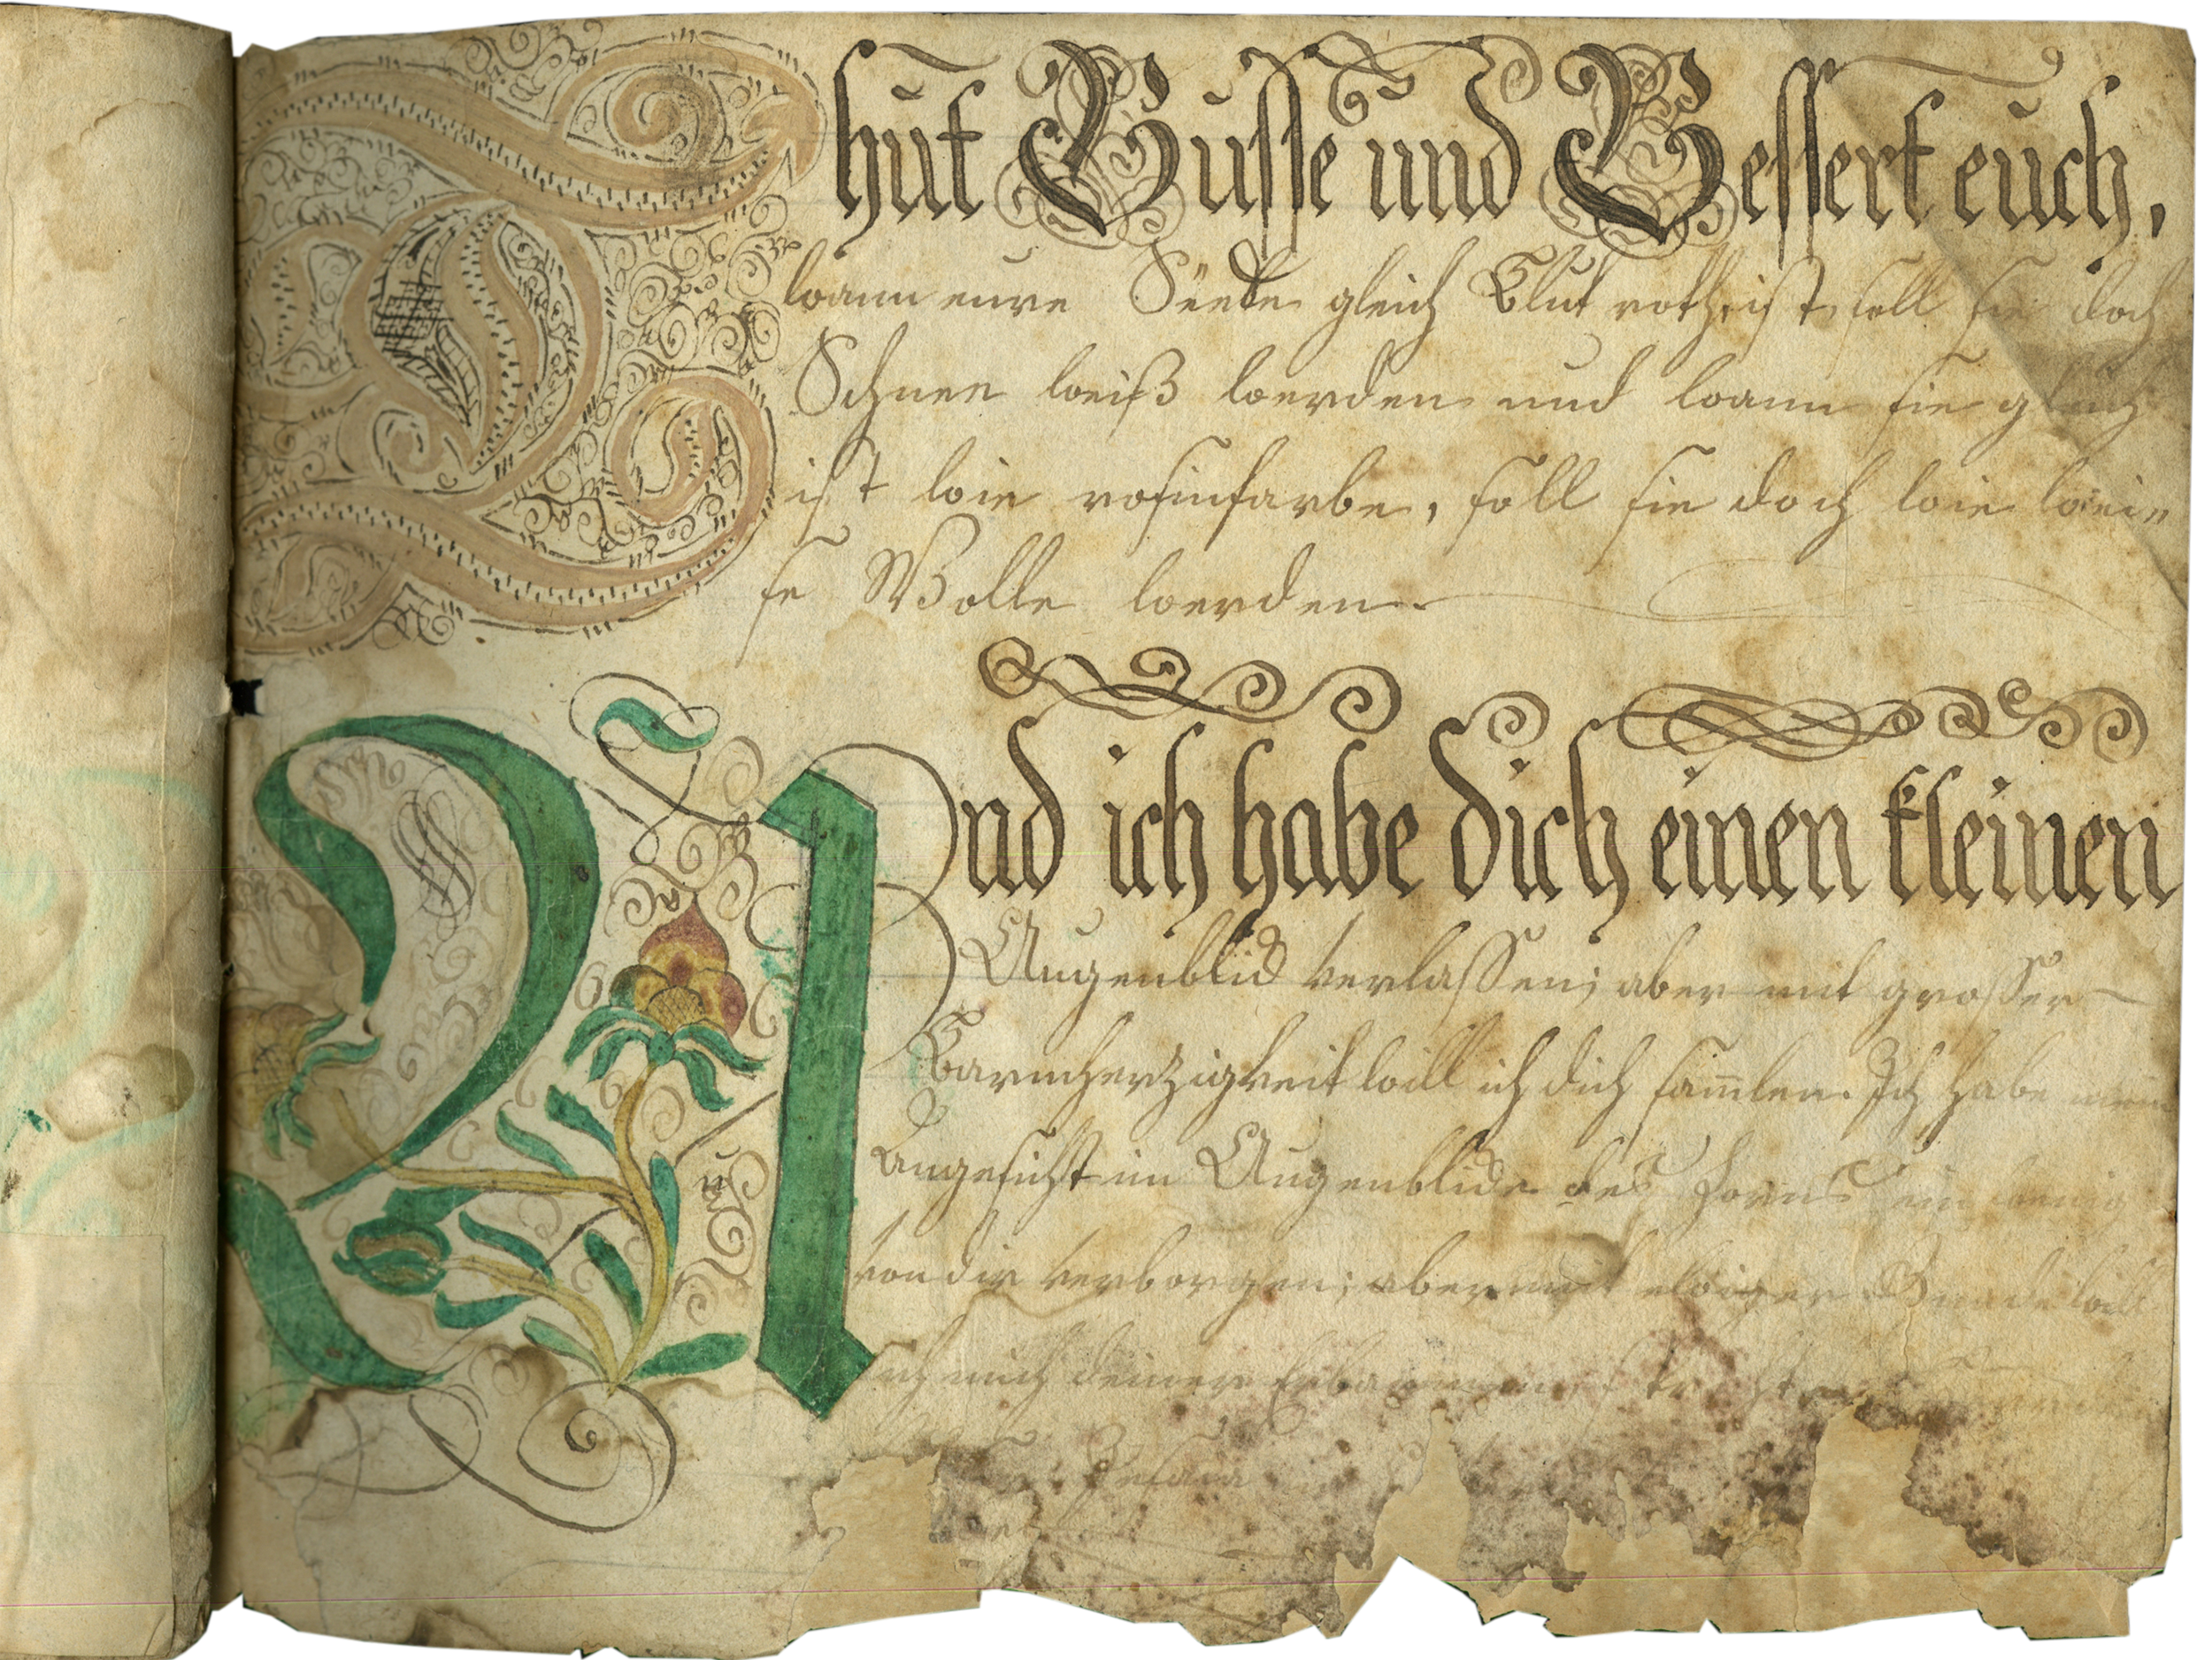 Thut Busse und Bessert euch,
wann eure Sünde gleich Blut roth ist, soll sie doch
Schnee weiß werden und wann sie gleich
ist wie rosinfarbe, soll sie doch wie wei„
se Wolle werden.
Und ich habe dich einen kleinen
Augenblick verlassen; aber mit grosser
Barmherzigkeit will ich dich sam̄len. Ich habe mein
Angesicht im Augenblick des Zorns ein wenig
von dir verborgen; aber mit ewiger Gnade will
ich mich deiner Erbarmen